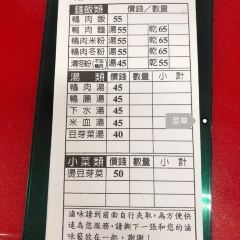 麵飯類 價錢/數量
鴨肉飯 55
鴨肉麵 湯55 乾65
鴨肉米粉 湯55 乾65
鴨肉冬粉 湯55 乾65
清冬粉 湯45 乾55
湯類 價錢 數量 小計
鴨肉湯 45
鴨腸湯 45
下水湯 45
米血湯 45
豆芽菜湯 40
小菜類 價錢 數量 小計
燙豆芽菜 50
滷味請到前面自行夾取,為方便快
速為您服務,請撕下一張和您的滷
味籃放在一起,謝謝!
菜单